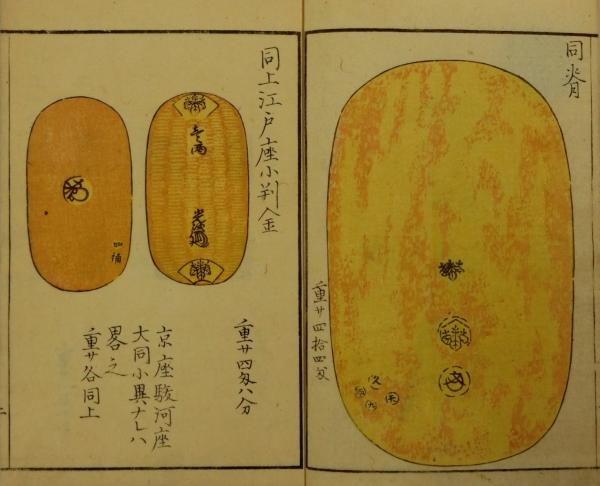 同背
重サ四拾四匁
同上江戸座小判金
壹両
光次
重サ四匁八分
京座駿河座
大同小異ナレハ
畧之
重サ各同上